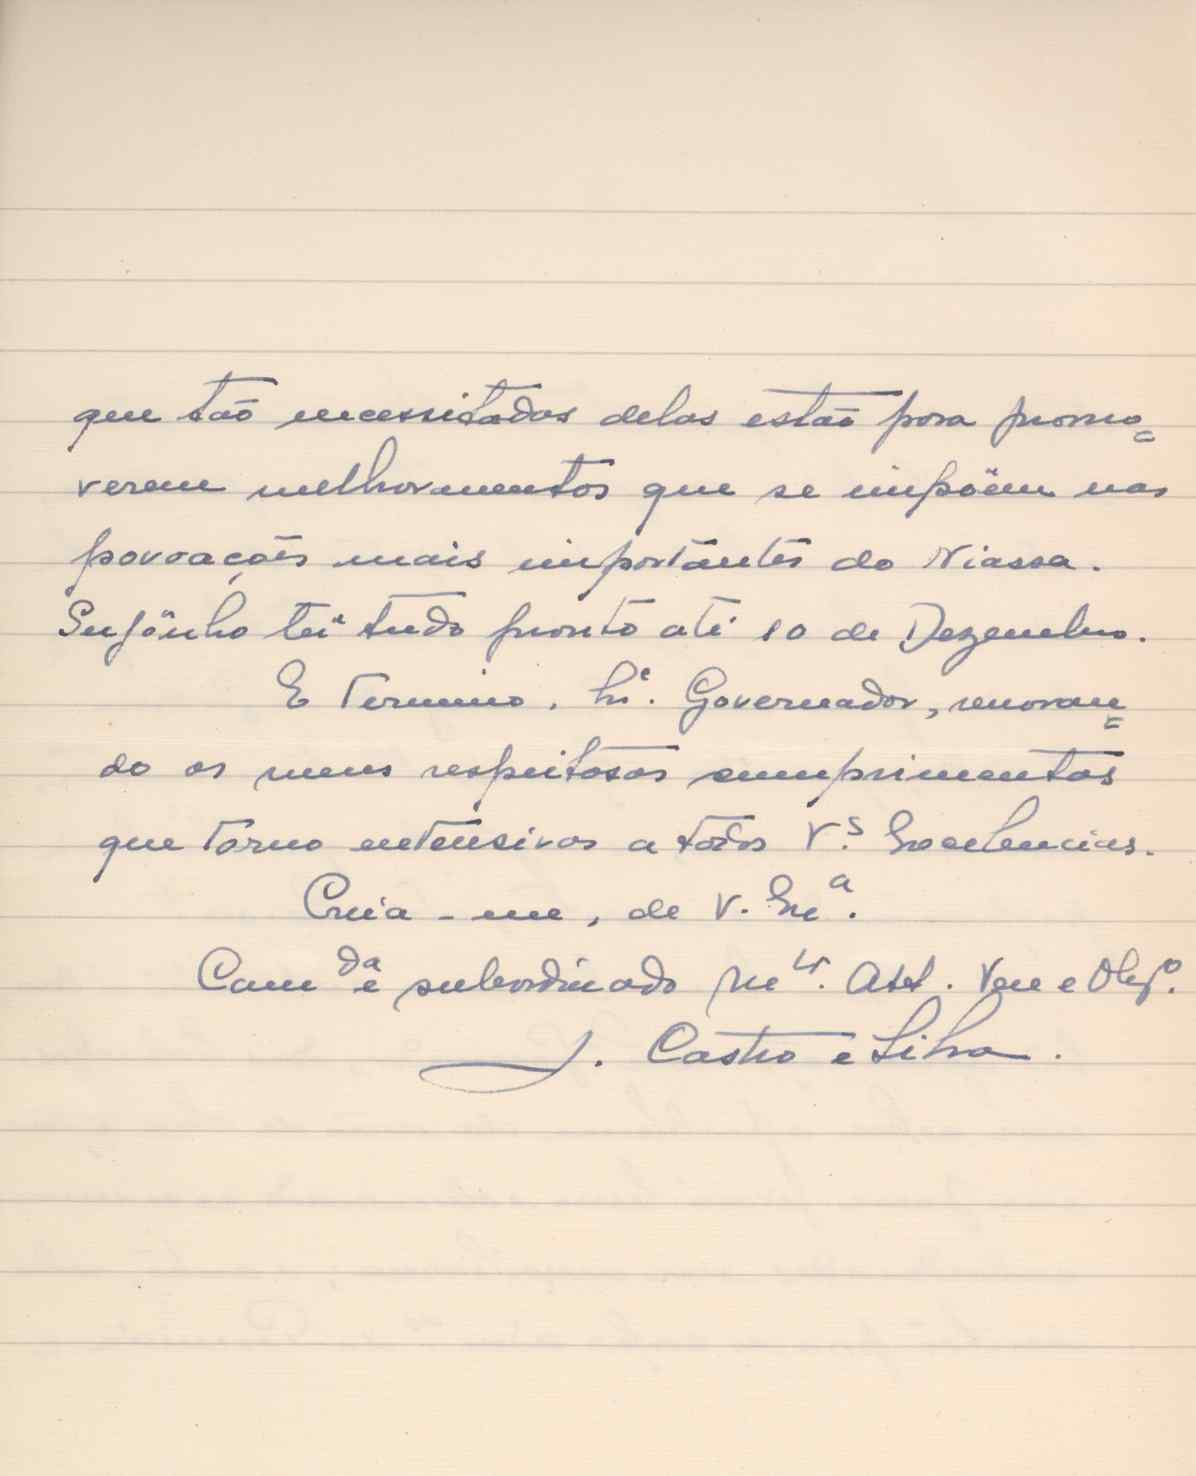 que tão necessitadas delas estão para promo=
verem melhoramentos que se impõem nas
povoações mais importantes do Niassa.
Suponho ter tudo pronto até 10 de Dezembro.
E termino, Sr. Governador, renovan=
do os meus respeitosos cumprimentos
que torno extensivos a todos V.s Excelencias.
Creia-me, de V. Exc.a
Cam.da e subordinado Mt. Att. Ven e Obg.o
J. Castro e Silva.